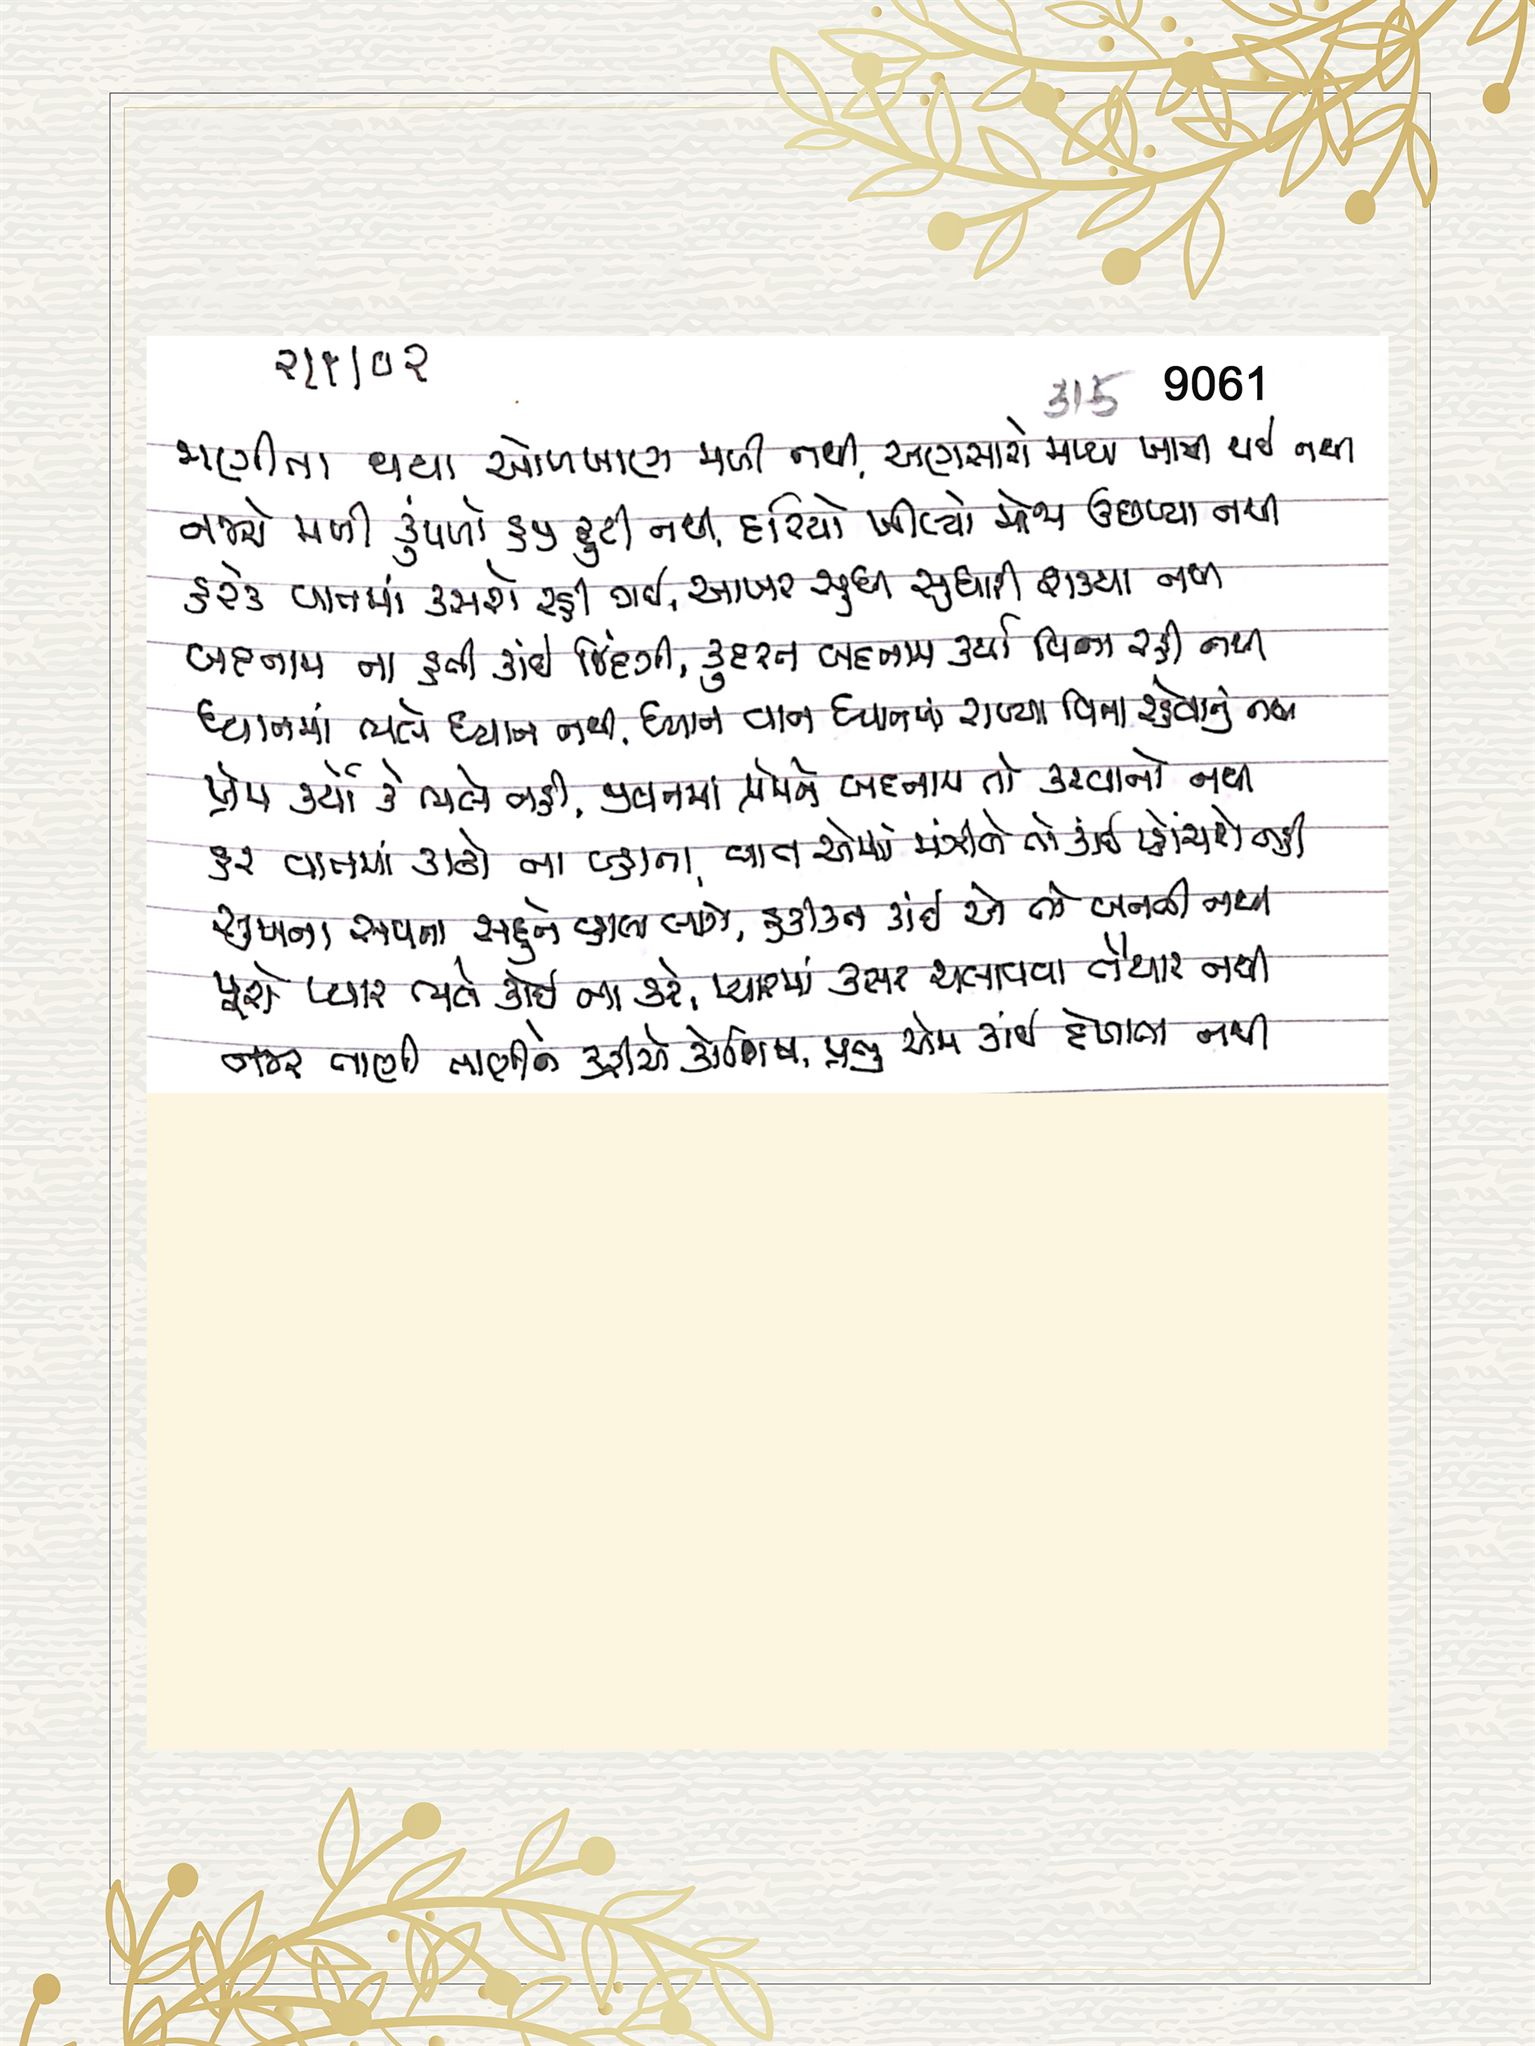 ૨/૧/૦૨
315 9061
જાણીતા થયા ઓળખાણ મળી નથી, અણસારો મળ્યા ખાત્રી થઈ નથી
નજરો મળી કુંપળો હજી ફુટી નથી, દરિયો ખીલ્યો મોજા ઉછળ્યા નથી
હરેક વાતમાં કસરો રહી ગઈ, આખર સુધી સુધારી શક્યા નથી
બદનામ ના હતી કાંઈ જિંદગી, કુદરત બદનામ કર્યા વિના રહી નથી
ધ્યાનમાં ભલે ધ્યાન નથી, ધ્યાન વાત ધ્યાનમાં રાખ્યા વિના રહેવાનું નથી
પ્રેમ કર્યો કે ભલે નહી, જીવનમાં પ્રેમને બદનામ તો કરવાનો નથી
હર વાતમાં કાઢો ના બહાના, વાત એમાં મંઝીલે તો કાંઈ પ્હોંચશે નહી
સુખના સપના સહુને વ્હાલા લાગે, હકીકત કાંઈ એ તો બનતી નથી
પૂરો પ્યાર ભલે કોઈ ના કરે, પ્યારમાં કસર ચલાવવા તૈયાર નથી
નજર તાણી તાણીને કરીએ કોશિષ, પ્રભુ એમ કાંઈ દેખાતા નથી